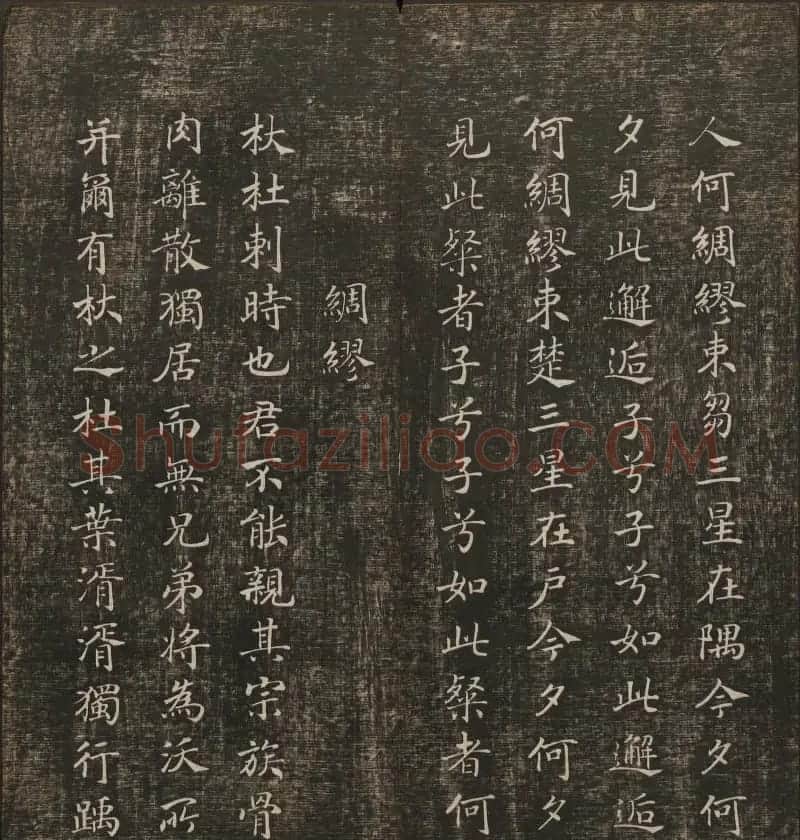 人何綢繆束芻三星在隅今夕何
夕見此邂逅子兮子兮如此邂逅
何綢繆束楚三星在戶今夕何夕
見此粲者子兮子兮如此粲者何
綢繆
杕杜刺時也君不能親其宗族骨
肉離散獨居而無兄弟將為沃所
并爾有杕之杜其葉湑湑獨行踽
Shufaziliao.com